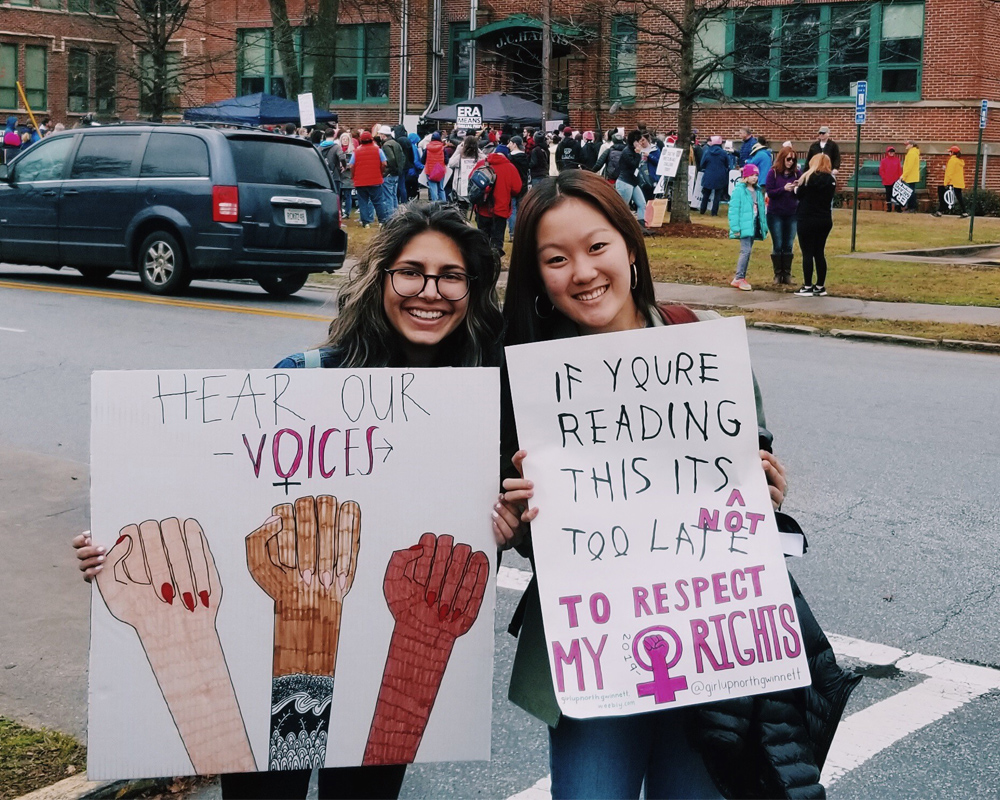 J.C. HARRIS
ERA
MEANS
HEAR OUR
-VOICES→
IF YOURE
READING
THIS ITS
^
NOT
TOO LATE
TO RESPECT
MY RIGHTS
2019
girlupnorthgwinnett
weebly.com
@girlupnorthgwinnett